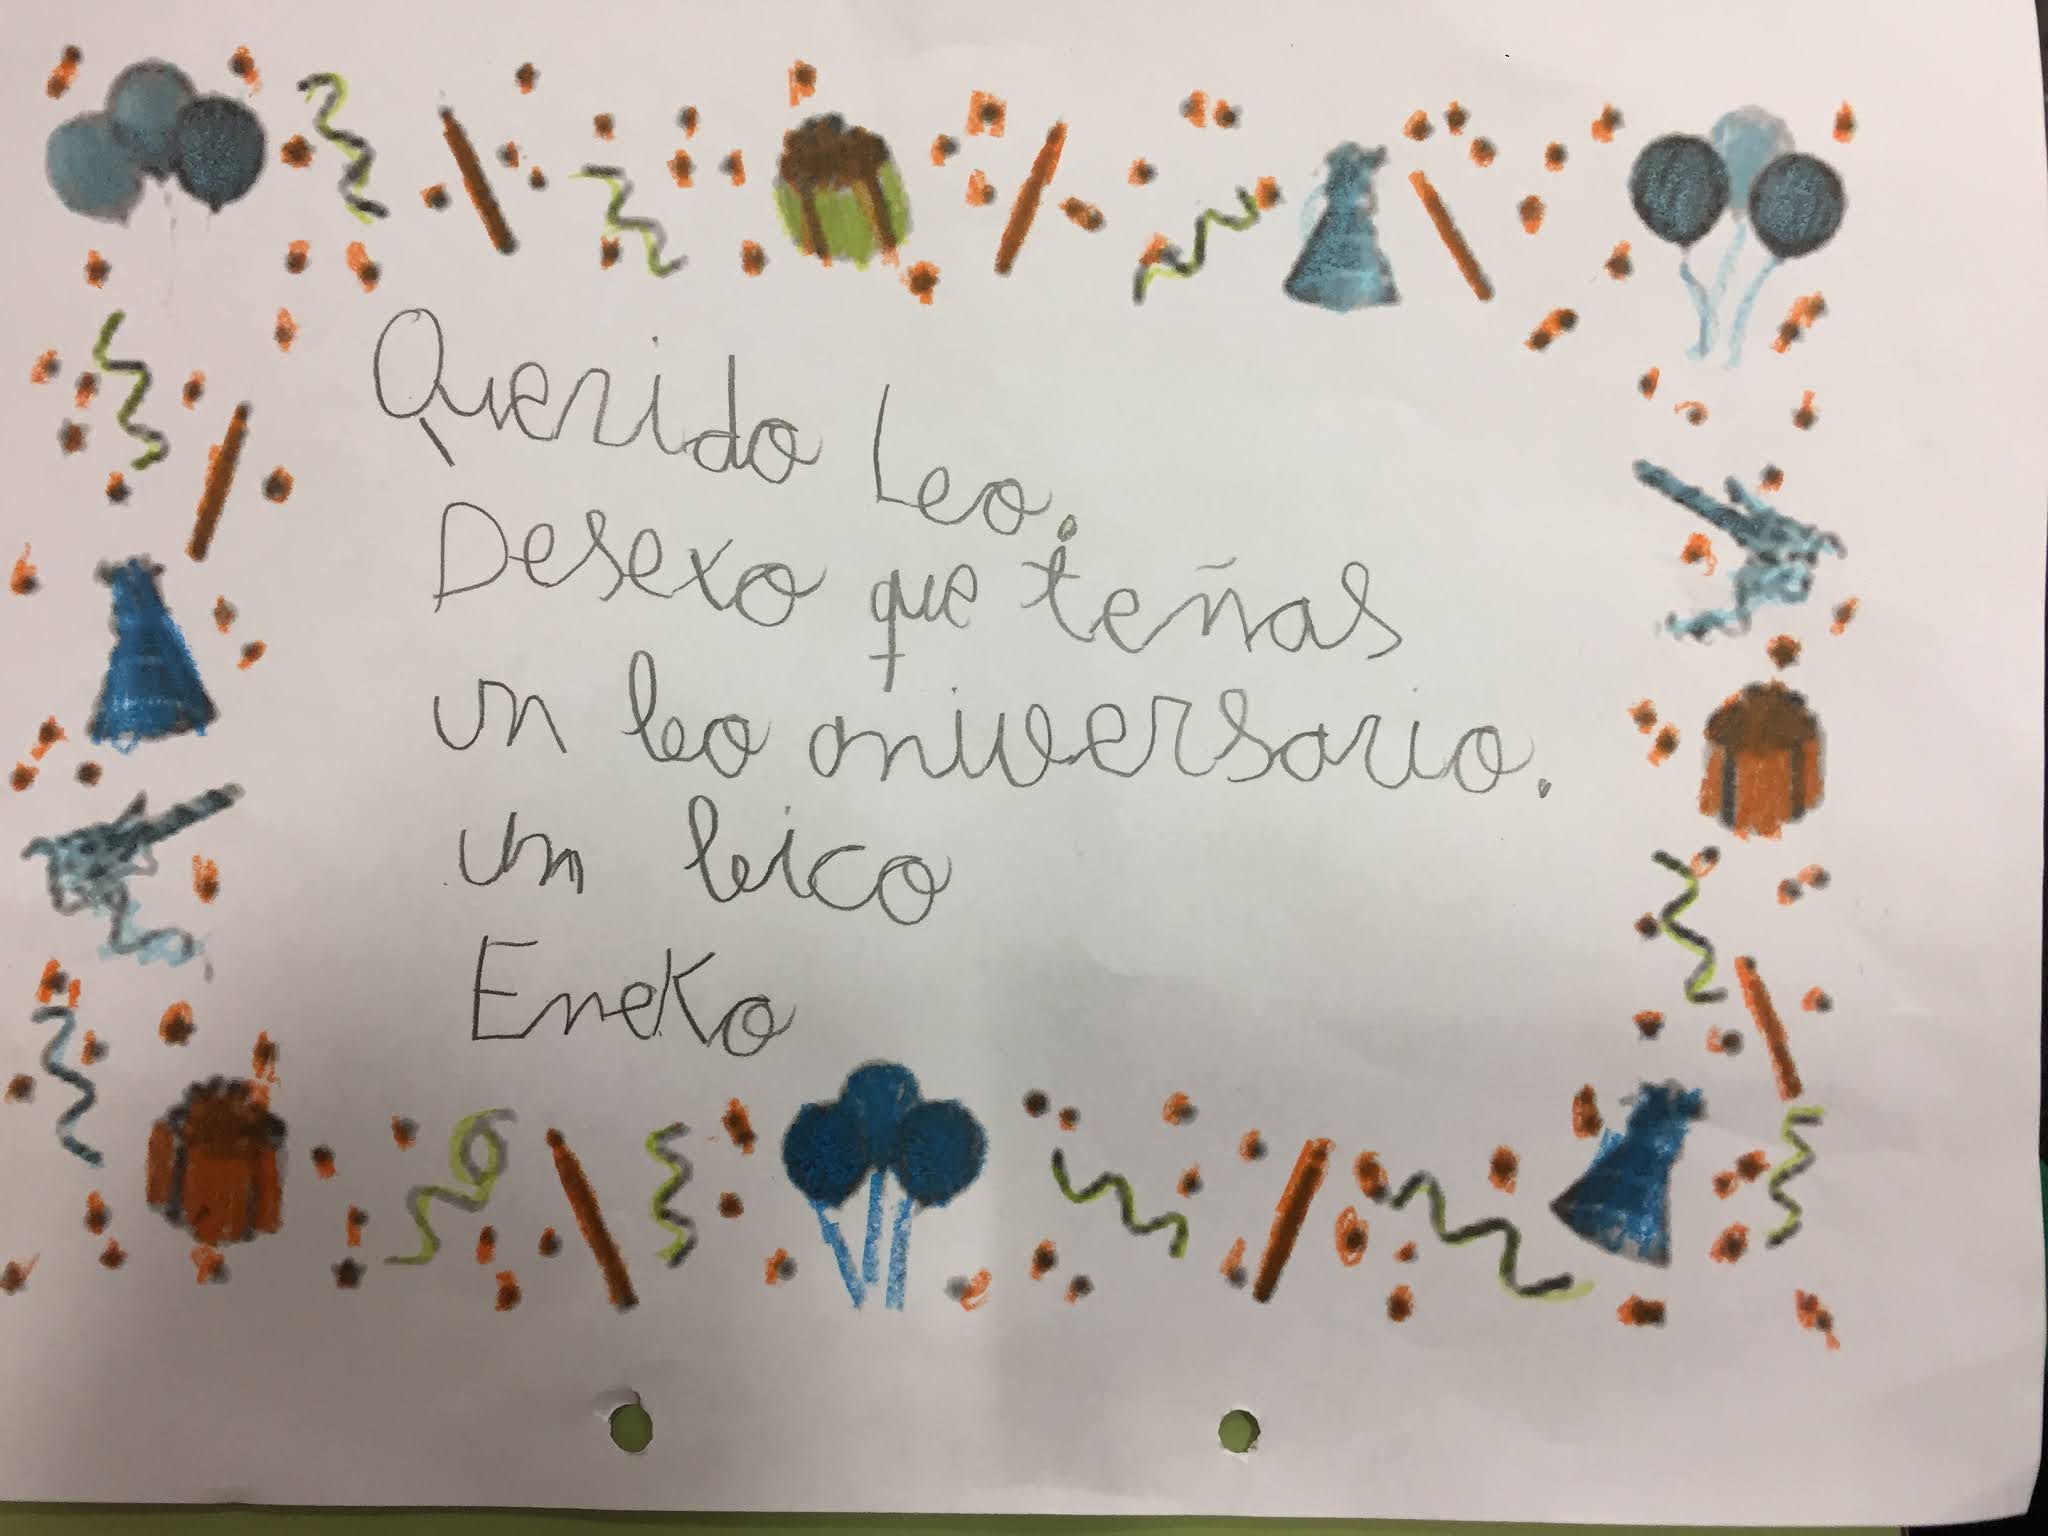 Querido Leo.
Desexo que teñas
un bo aniversario.
un bico
Eneko